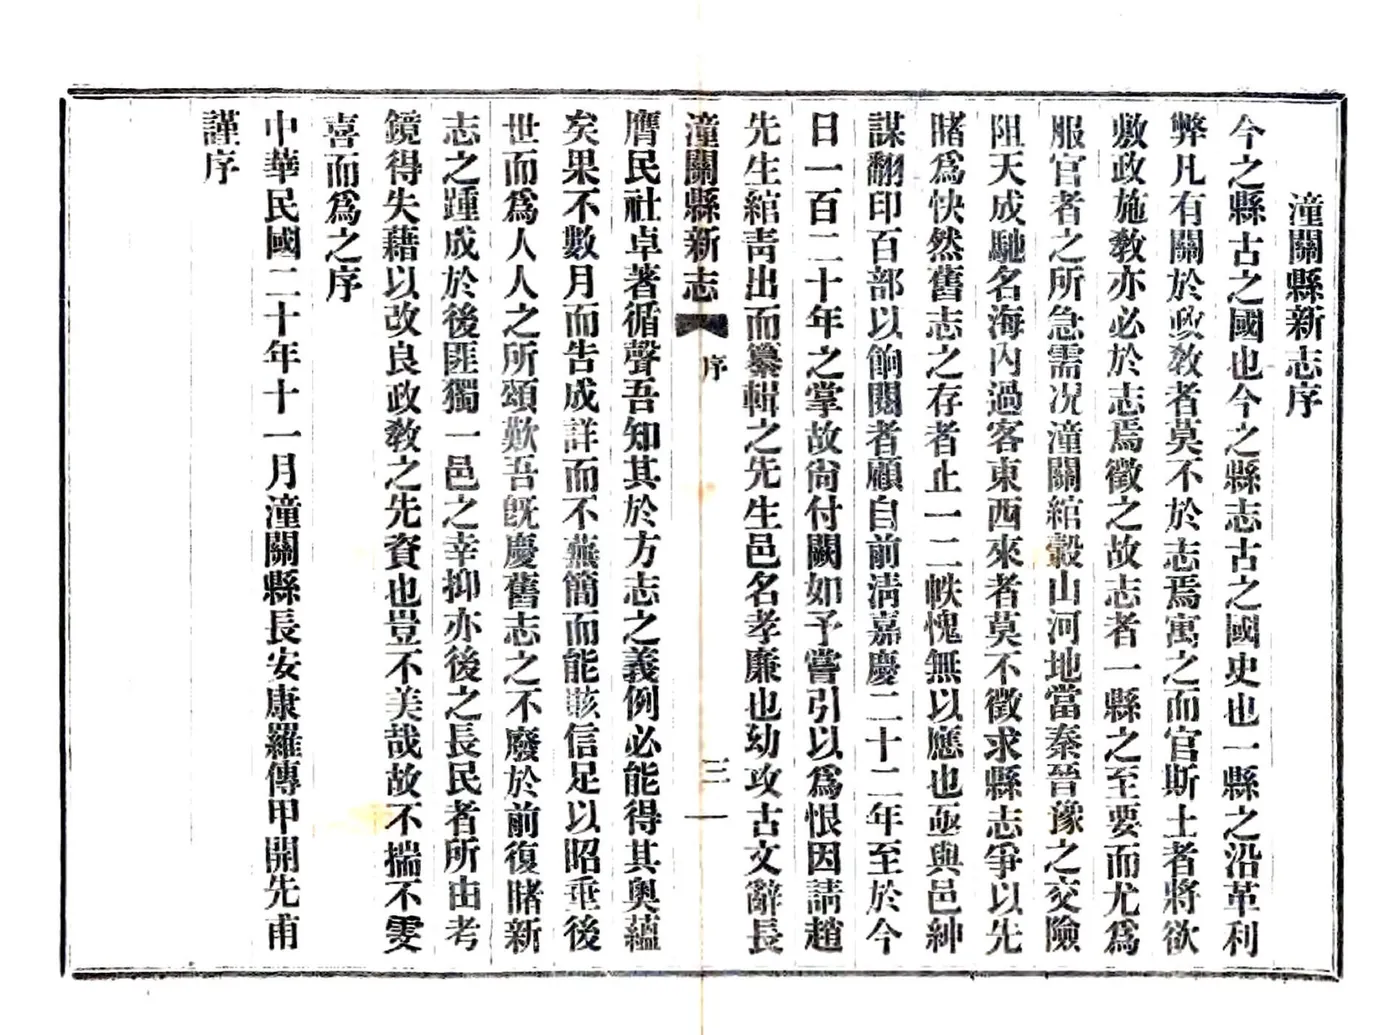 潼關縣新志序
今之縣古之國也今之縣志古之國史也一縣之沿革利
弊凡有關於政教者莫不於志焉寓之而官斯土者將欲
敷政施教亦必於志焉徵之故志者一縣之至要而尤爲
服官者之所急需况潼關綰轂山河地當秦晉豫之交險
阻天成馳名海內過客東西來者莫不徵求縣志爭以先
睹爲快然舊志之存者止一二帙愧無以應也亟與邑紳
謀翻印百部以餉閱者顧自前淸嘉慶二十二年至於今
日一百二十年之掌故尙付闕如予嘗引以爲恨因請趙
先生綰靑出而纂輯之先生邑名孝廉也幼攻古文辭長
潼關縣新志 序 三一
膺民社卓著循聲吾知其於方志之義例必能得其奧蘊
矣果不數月而告成詳而不蕪簡而能賅信足以昭垂後
世而爲人人之所頌歎吾旣慶舊志之不廢於前復睹新
志之踵成於後匪獨一邑之幸抑亦後之長民者所由考
鏡得失藉以改良政教之先資也豈不美哉故不揣不雯
喜而爲之序
中華民國二十年十一月潼關縣長安康羅傳甲開先甫
謹序